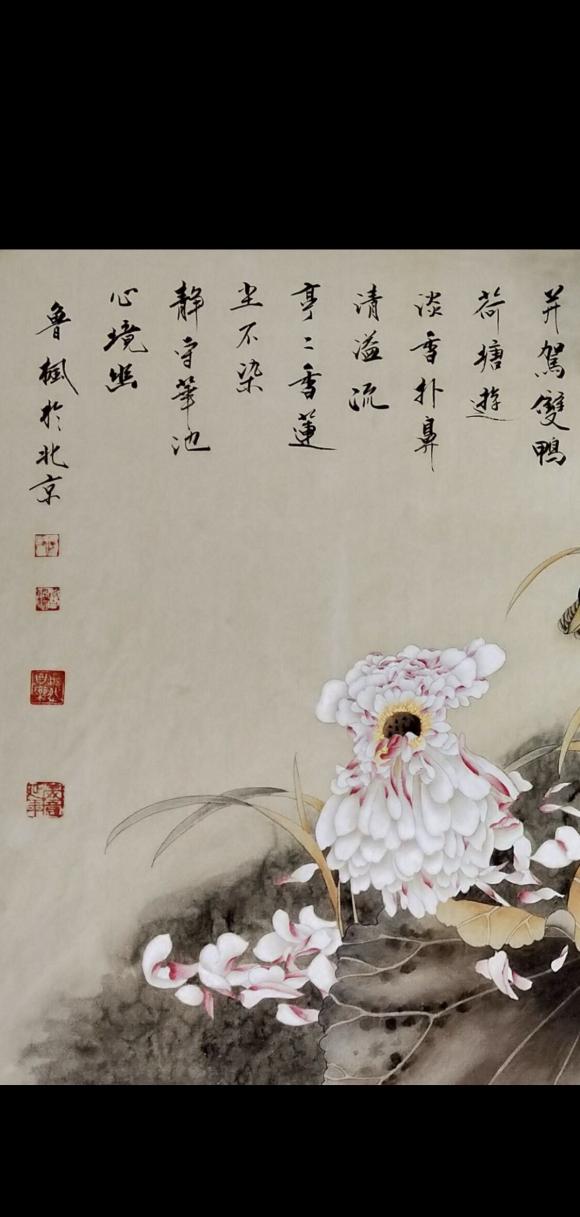 并駕雙鴨
荷塘遊
淡香扑鼻
清溢流
亭〻香蓮
尘不染
静守華池
心境幽
魯楓於北京